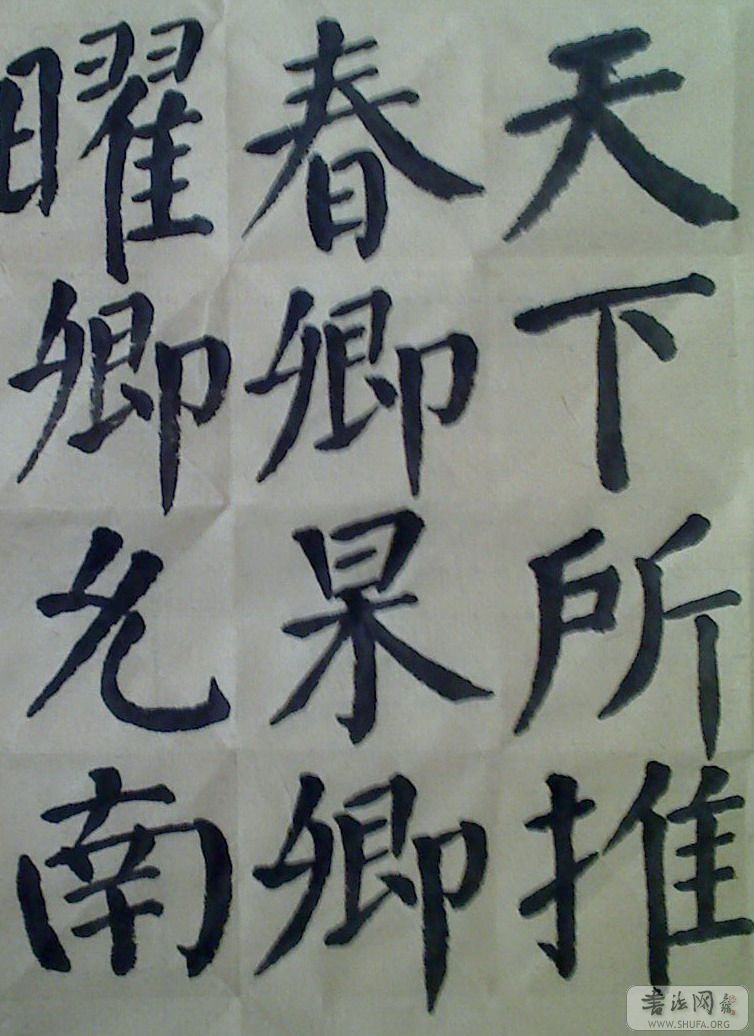 天下所推
春卿杲卿
曜卿允南
书法网
WWW.SHUFA.ORG